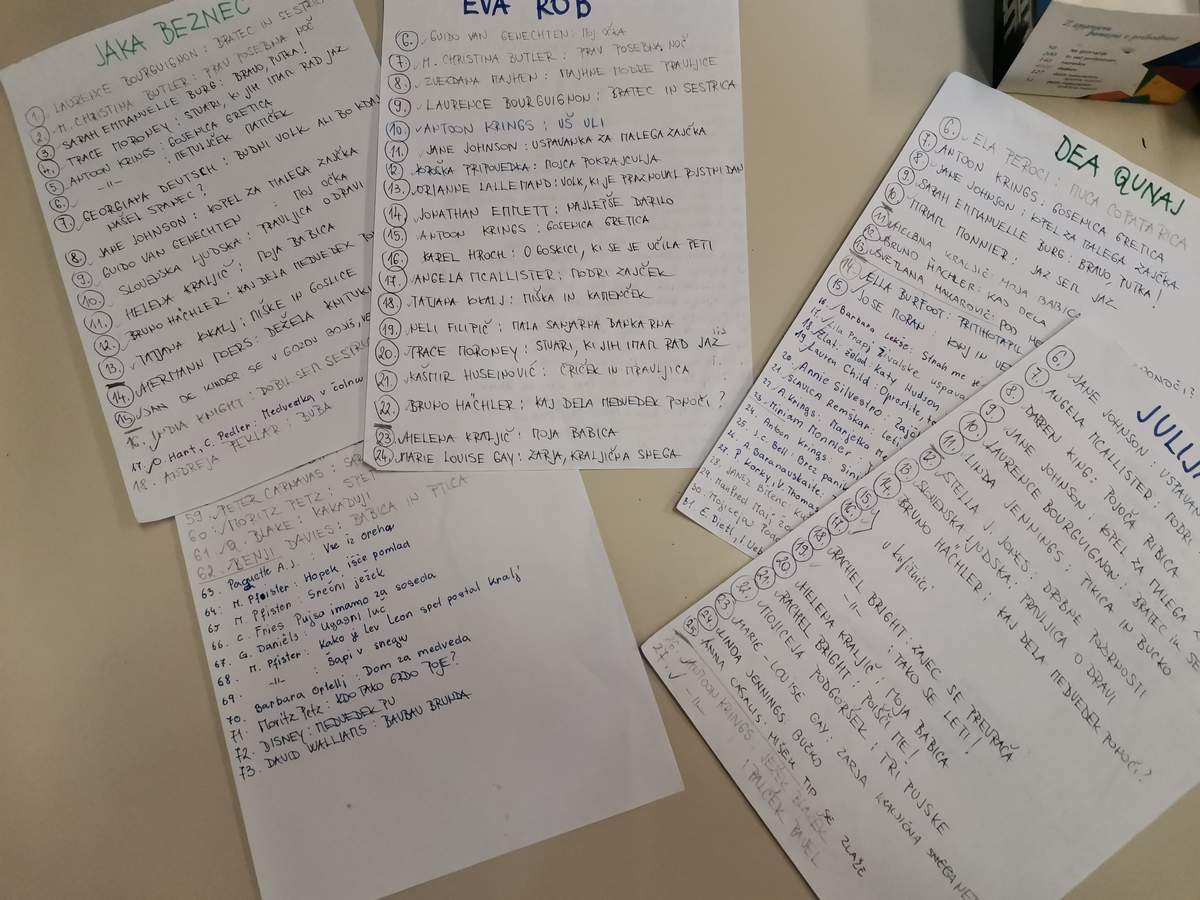 JAKA BEZNEC
1. LAURENCE BOURGUIGNON: BRATEC IN SESTRIC
2. M. CHRISTINA BUTLER: PRAV POSEBNA NOČ
3. SARAH EMMANUELLE BURG: BRAVO, PUTKA!
4. TRACE MORONEY: STVARI, KI JIH IMAM RAD JAZ
5. ANTOON KRINGS: GOSENICA GRETICA
6. -11- : PETELJŠEK PATIČEK
7. GEORGIANA DEUTSCH: BUDNI VOLK ALI BO KDAJ
NAŠEL SPANEC?
8. JANE JOHNSON: KOPEL ZA MALEGA ZAJČKA
9. GUIDO VAN GENECHTEN: MOJ OČKA
10. SLOVENSKA LJUDSKA: PRAVLJICA O DRAVI
11. HELENA KRALJIČ: MOJA BABICA
12. BRUNO HÄCHLER: KAJ DELA MEDVEDEK PO
13. TATJANA KOKALJ: MIŠKE IN GOSLICE
14. MERMANN MOERS: DEŽELA
15. JAN DE KINDER SE V GOZDU BOJIŠ,
16. LYDIA KNIGHT: DOBIL SEM SESTRIC
17. O. Hart, C. Pedler: Medvedka v čolnu
18. ANDREJA PEKLAR: BUBA
EVA ROB
6. GUIDO VAN GENECHTEN: Moj očka
7. M. CHRISTINA BUTLER: PRAV POSEBNA NOČ
8. ZVEZDANA MAJHEN: MAJHNE MODRE PRAVLJICE
9. LAURENCE BOURGUIGNON: BRATEC IN SESTRICA
10. ANTOON KRINGS: UŠ ULI
11. JANE JOHNSON: USPAVANKA ZA MALEGA ZAJČKA
12. KOROŠKA PRIPOVEDKA: MOJCA POKRAJCULJA
13. ORIANNE LALLEMAND: VOLK, KI JE PRAZNOVAL PUSTNI DAN
14. JONATHAN EMMETT: NAJLEPŠE DARILO
15. ANTOON KRINGS: GOSENICA GRETICA
16. KAREL HROCH: O GOSKICI, KI SE JE UČILA PETI
17. ANGELA MCALLISTER: MODRI ZAJČEK
18. TATJANA KOKALJ: MIŠKA IN KAMENČEK
19. NELI FILIPIČ: MALA SANJARNA BANKARNA
20. TRACE MORONEY: STVARI, KI JIH IMAM RAD JAZ
21. KAŠMIR HUSEINOVIĆ: ČRIČEK IN MRAVLJICA
22. BRUNO HÄCHLER: KAJ DELA MEDVEDEK PONOČI?
23. HELENA KRALJIČ: MOJA BABICA
24. MARIE LOUISE GAY: ZARJA, KRALJIČNA SNEGA
59. PETER CARNAVAS: SAR
60. MORITZ PETZ: SPET
61. Q. BLAKE: KAKADUJI
62. BENJI DAVIES: BABICA IN PTICA
63. Paquette A.J.: Vse iz oreha
64. M. Pfister: Hopek išče pomlad
65 M. Pfister: Srečni ježek
66. C. Fries Pujsa imamo za soseda
67. G. Daniëls: Ugasni luč
68. M. Pfister: Kako je Lev Leon spet postal kralj
69. -11- : Šapi v snegu
70. Barbara Ortelli: Dom za medveda
71. Moritz Petz: KDO TAKO GRDO POJE?
72. DISNEY: MEDVEDEK PU
73. DAVID WALLIAMS: BAUBAU BRUNDA
DEA QUNAJ
6. ELA PEROCI: MUCA COPATARICA
7. ANTOON KRINGS: GOSENICA GRETICA
8. JANE JOHNSON: KOPEL ZA MALEGA ZAJČKA
9. SARAH EMMANUELLE BURG: BRAVO, PUTKA!
10. MIRIAM MONNIER: JAZ SEM JAZ
11. HELENA KRALJIČ MOJA BABICA
12. BRUNO HÄCHLER: KAJ DELA
13. SVETLANA MAKAROVIČ: POD ME
14. ELLA BURFOOT: PRITIHOTAPIL
15. JOSE MORAN: KONJ IN
16. Barbara Lekše: Strah me
17. Lila Prap: Živalske uspava
18. Zlati želod Katy Hudson
19. Lauren Child: Oprostite,
20. Annie Silvestro: Zajč
21. SLAVICA REMŠKAR: Leti
22. A. Krings: Marjetka Me
23. Miriam Monnier:
24. Antoon Krings: Sinj
25. J. C. Bell: Brez panik
26. A. Baranauskaite:
27. P. Korky, V. Thomas
28. JANEZ BITENC:
29. Manfred Mai:
30. Mojiceja Pod
31. E. Dietl,
PONOČI?
JULIJA
6. JANE JOHNSON: USPAVAN
7. ANGELA MCALLISTER: MODRI
8. DARREN KING: POJOČA RIBICA
9. JANE JOHNSON: KOPEL ZA MALEGA
10. LAURENCE BOURGUIGNON: BRATEC IN SE
11. LINDA JENNINGS: PIKICA IN BUČKO
12. STELLA J. JONES: DROBNE POZORNOSTI
13. SLOVENSKA LJUDSKA: PRAVLJICA O DRAVI
14. BRUNO HÄCHLER: KAJ DELA MEDVEDEK PONOČI?
15.
16. v knjižnici
17.
18. RACHEL BRIGHT: ZAJEC SE PREVRAČA
19. -11- : TAKO SE LETI!
20. HELENA KRALJIČ: MOJA BABICA
21. RACHEL BRIGHT: POIŠČI ME!
22. MOJICEJA PODGORŠEK: TRI PUJSKE
23. MARIE-LOUISE GAY: ZARJA KRALJIČNA SNEGA
24. LINDA JENNINGS BUČKO
25. ANNA CASALIS: MIŠEK TIP SE ZLAŽE
26. ANTOON KRINGS: JEŽEK BLAŽEK
27. -11- : PALČEK PAVEL